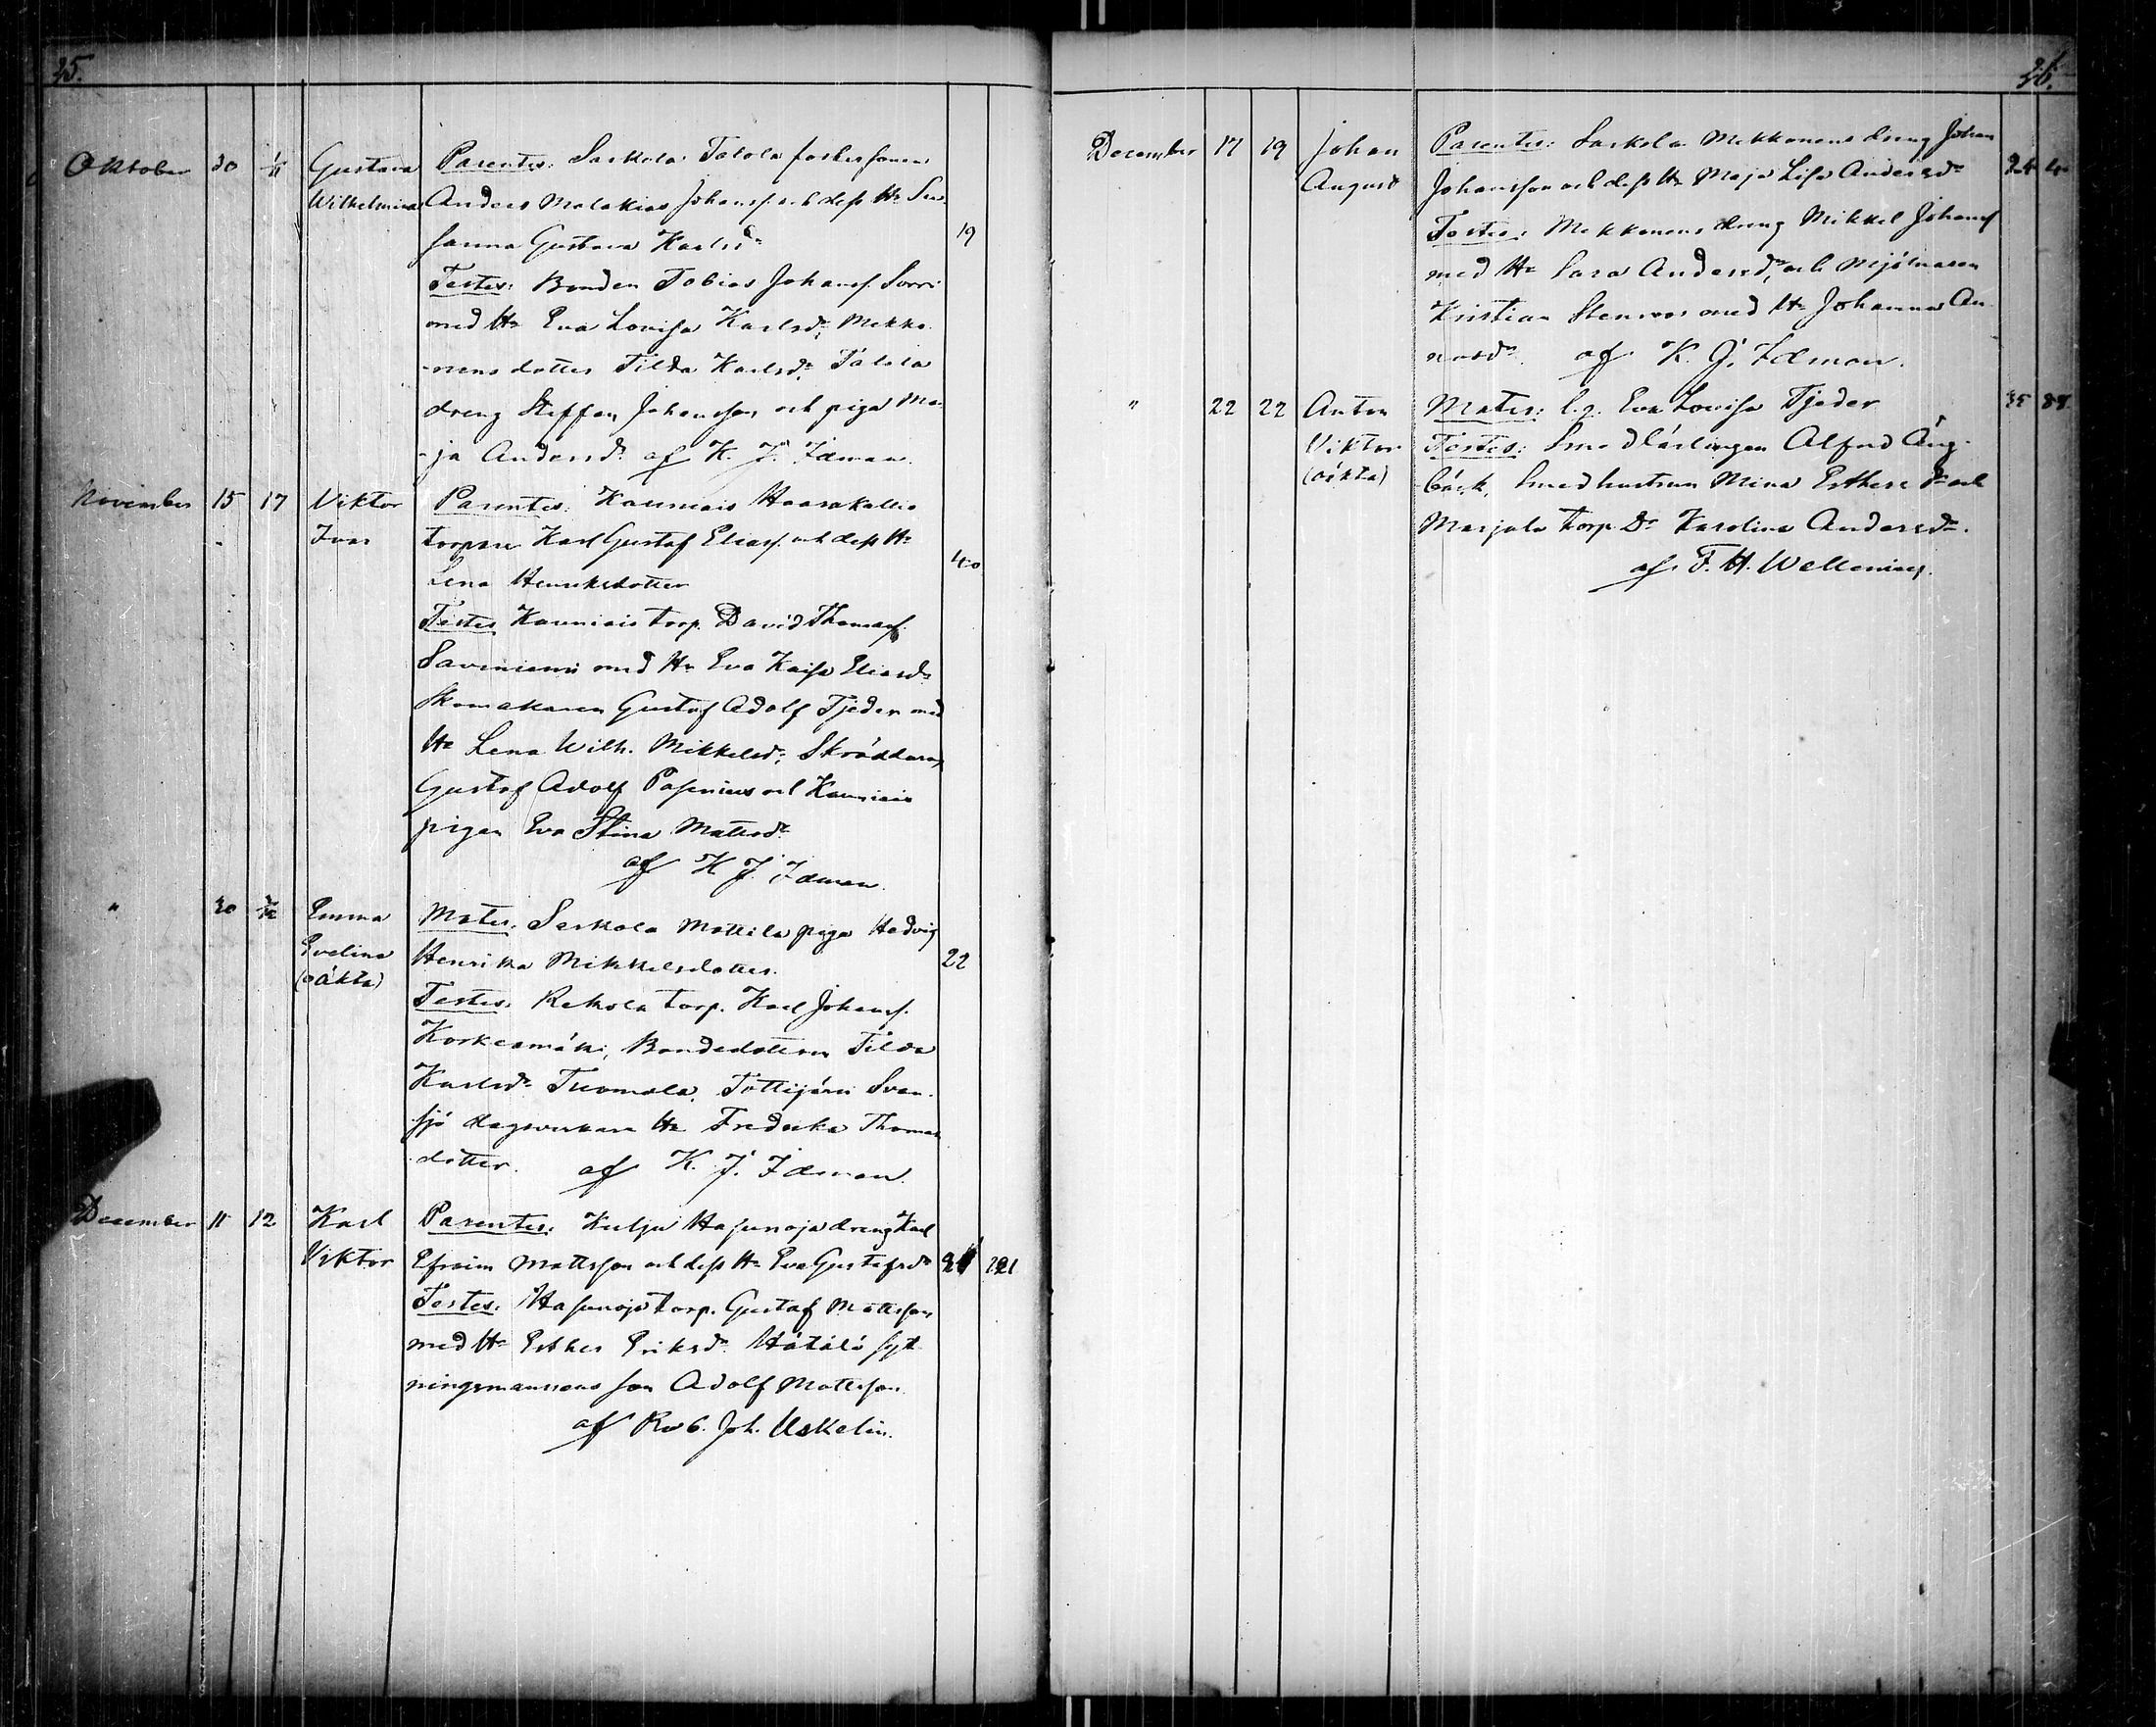 25.
Oktober 30 1/11 Gustava Parentes: Sarkola Talola fostersonen
Wilhelmina Anders Malakias Johansf. och dess Hu Su-
sanna Gustava Karlsdr 19
Testes: Bonden Tobias Johansf. Sorri
med Hu Eva Lovisa Karlsdr, Mekko-
nens dotter Tilda Karlsdr, Talola
dreng Steffan Johansson och piga Ma-
ja Andersdr. af K. J. Idman.
November 15 17 Viktor Parentes: Kauniais Haarakallio
Ivar torpare Karl Gustaf Eliasf. och dess Hu
Lena Henriksdotter 40
Testes Kauniais torp. David Thomasf.
Saviniemi med Hu Eva Kaisa Eliasdr
Skomakaren Gustaf Adolf Tjeder med
Hu Lena Wilh. Mikkelsdr, Skräddaren
Gustaf Adolf Pasenius och Kauniais
pigan Eva Stina Mattsdr
af K J. Idman.
" 30 Emma Mater: Sarkola Mattila piga Hedvig
Evelina Henrika Mikkelsdotter. 22
(oäkta)
Testes: Rekola torp. Karl Johansf.
Korkeamäki, Bondedottern Tilda
Karlsdr Tuomola, Tottijärvi Svan-
sjö dagsverkare Hu Fredrika Thomas
dotter. af K. J. Idman.
December 11 12 Karl Parentes: Kulju Hasunoja dreng Karl
Viktor Efraim Mattsson och dess Hu Eva Gustafsdr 21
Testes: Hasunoja torp. Gustaf Mattsson
med Hu Esther Eriksdr. Hätälä syt-
ningsmannens son Adolf Mattsson.
af Rob. Joh. Uskelin.
26.
December 17 19 Johan Parentes: Sarkola Mekkonens dreng Johan
August Johansson och dess Hu Maja Lisa Andersdr 24
Testes: Mekkonens dreng Mikkel Johansf
med Hu Sara Andersdr, och Mjölnaren
Kristian Stenroos med Hu Johanna An-
nasdr. af K. J. Idman.
" 22 22 Anton Mater: l. q. Eva Lovisa Tjeder 35
Viktor Testes: Smedlärlingen Alfred Äng-
(oäkta) bäck, Smedhustrun Mina Esthersdr och
Marjala torp. Dr Karolina Andersdr.
af F. H. Wellenius.